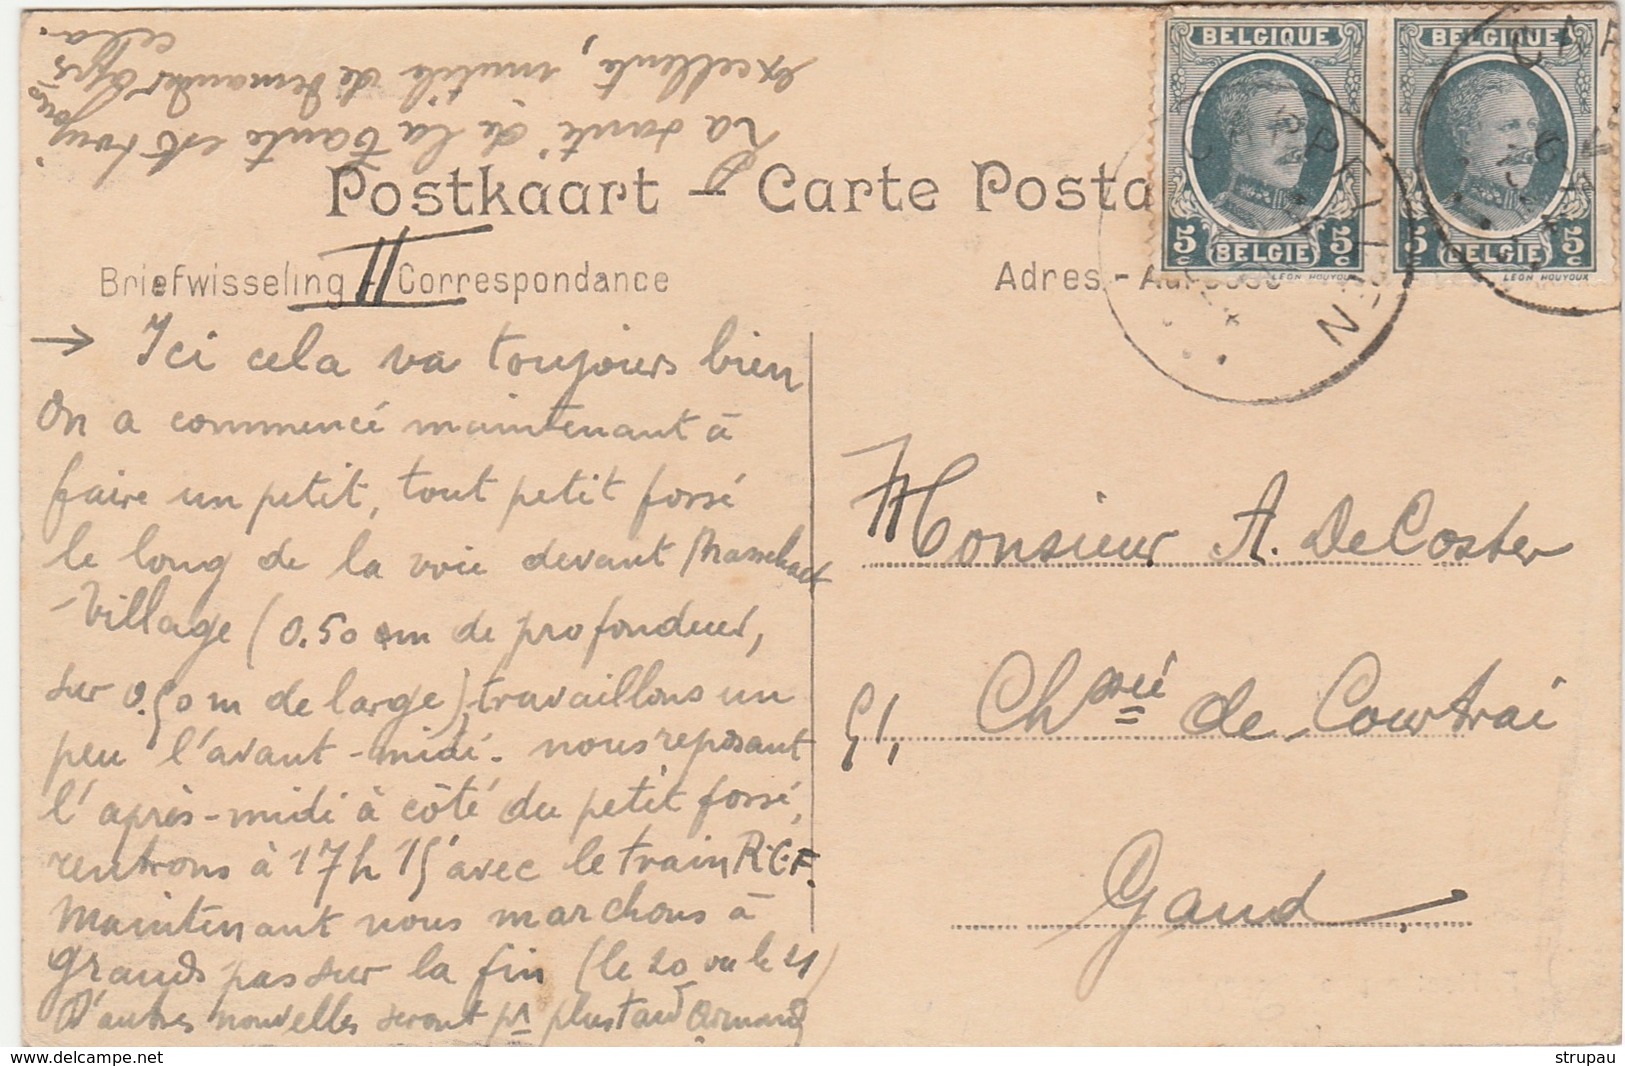 La santé de la tante est toujours
excellente, inutile de demander après
cela.
Postkaart - Carte Posta
II
Briefwisseling - Correspondance
Adres - Adresse
BELGIQUE
5c BELGIE 5c
LEON HOUYOUX
BELGIQUE
5c BELGIE 5c
LEON HOUYOUX
CAPPELLEN
CAP
→ Ici cela va toujours bien
On a commencé maintenant à
faire un petit, tout petit fossé
le long de la voie devant
-Village (0.50 cm de profondeur,
sur 0.50 m de large), travaillons un
peu l'avant-midi. nous reposant
l'après-midi à côté du petit fossé,
rentrons à 17h 15 avec le train R.C.F.
Maintenant nous marchons à
grands pas sur la fin (le 20 ou le 21)
D'autres nouvelles seront pr plus tard Armand
Monsieur A. De Coster
51, Chssée de Courtrai
Gand
www.delcampe.net
strupau